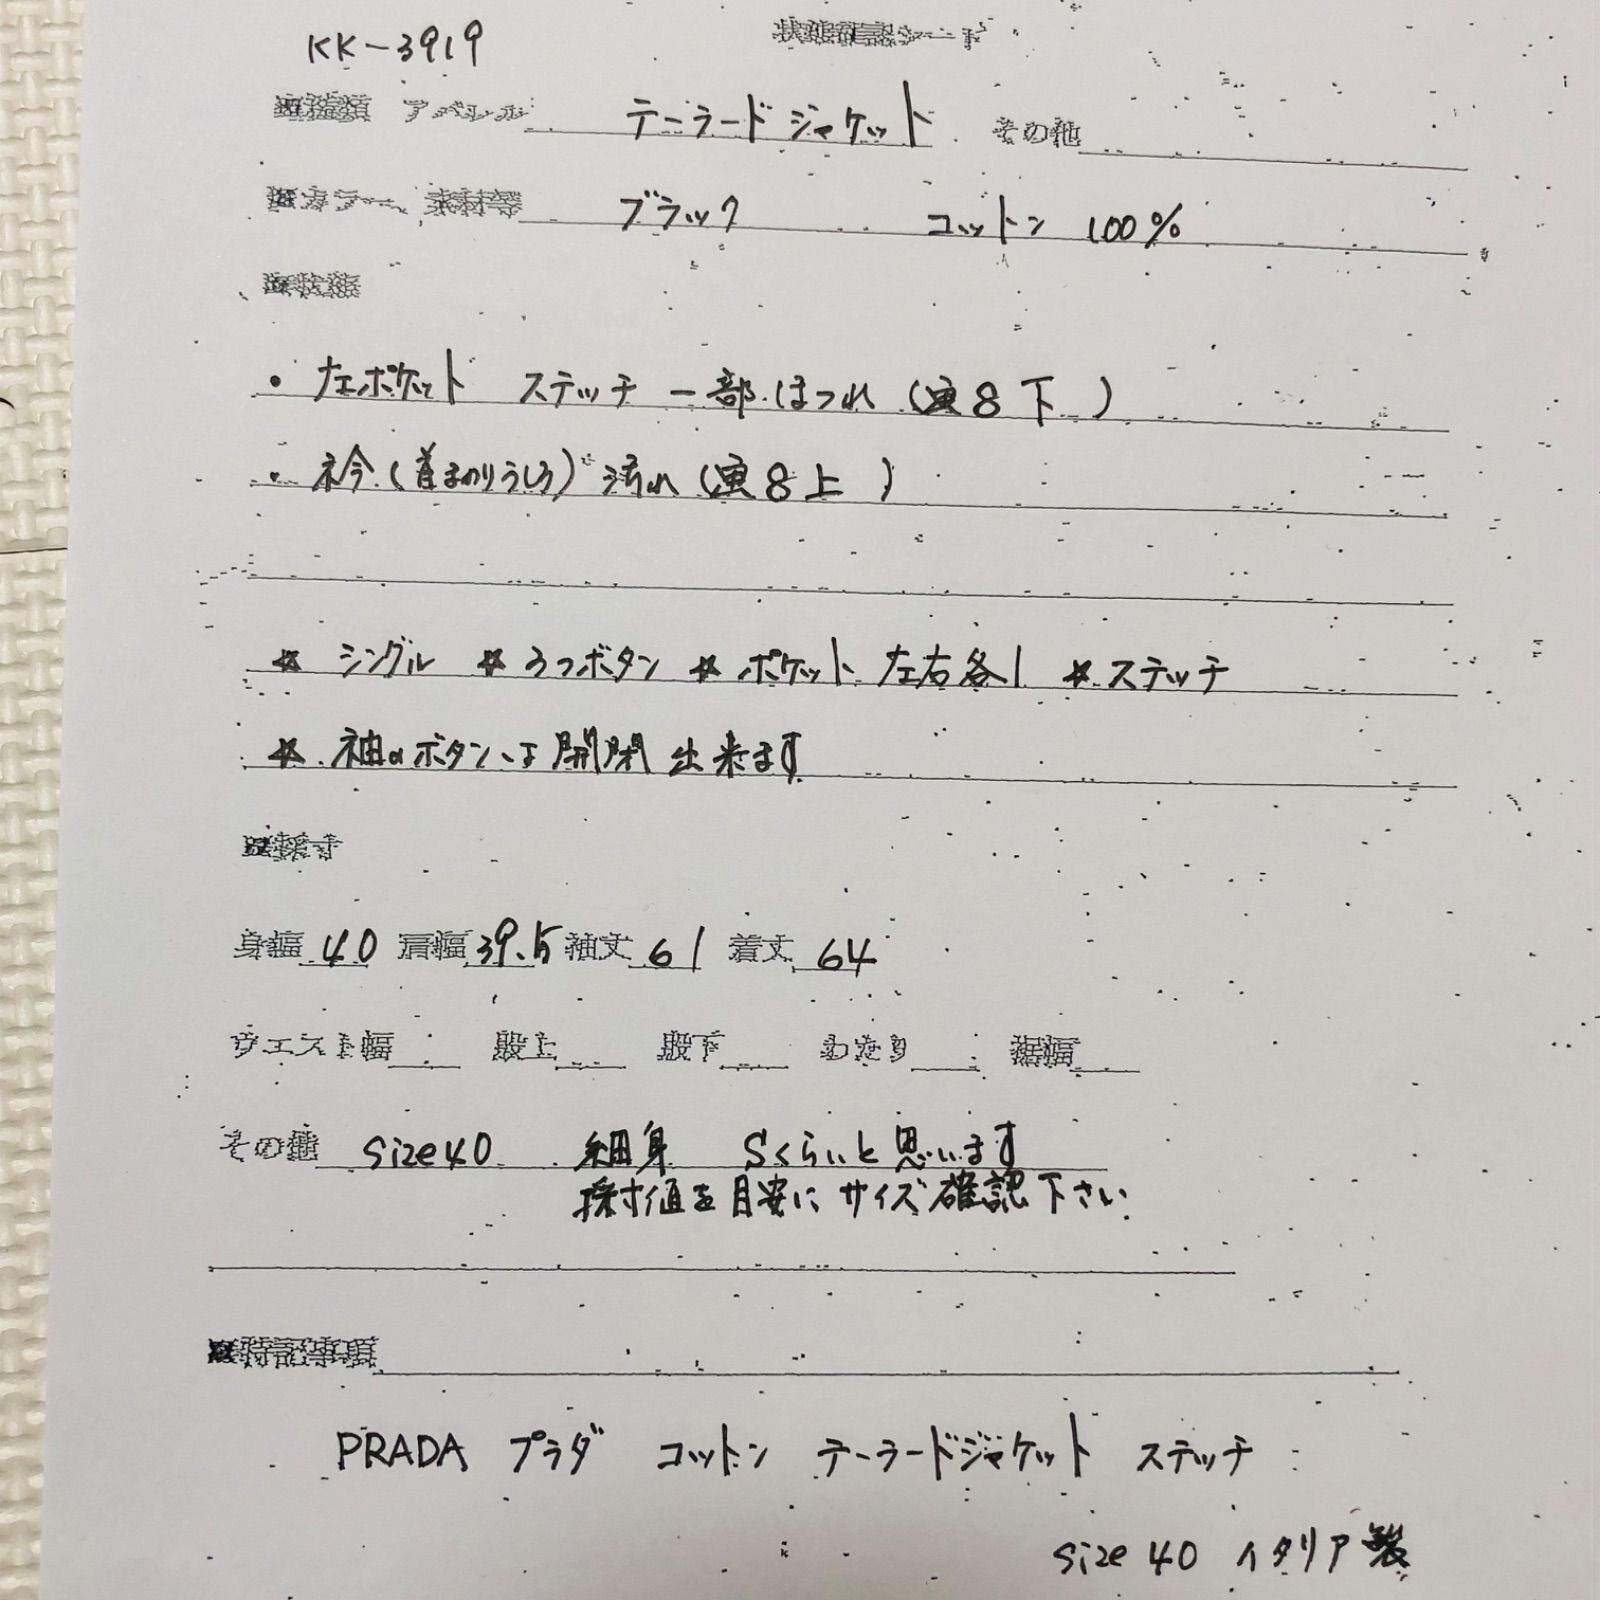 KK-3919
状態確認シート
■種類 アパレル テーラードジャケット その他
■カラー、素材等 ブラック コットン 100%
■状態
・左ポケット ステッチ 一部ほつれ (写8下)
・衿(首まわりうしろ) 汚れ (写8上)
☆シングル ☆3つボタン ☆ポケット 左右各1 ☆ステッチ
☆袖のボタンは開閉出来ます
■採寸
身幅 40 肩幅 39.5 袖丈 61 着丈 64
ウエスト幅 股上 股下 わたり 裾幅
その他 size40 細身 Sくらいと思います
採寸値を目安にサイズ確認下さい
■特記事項
PRADA プラダ コットン テーラードジャケット ステッチ
size 40 イタリア製